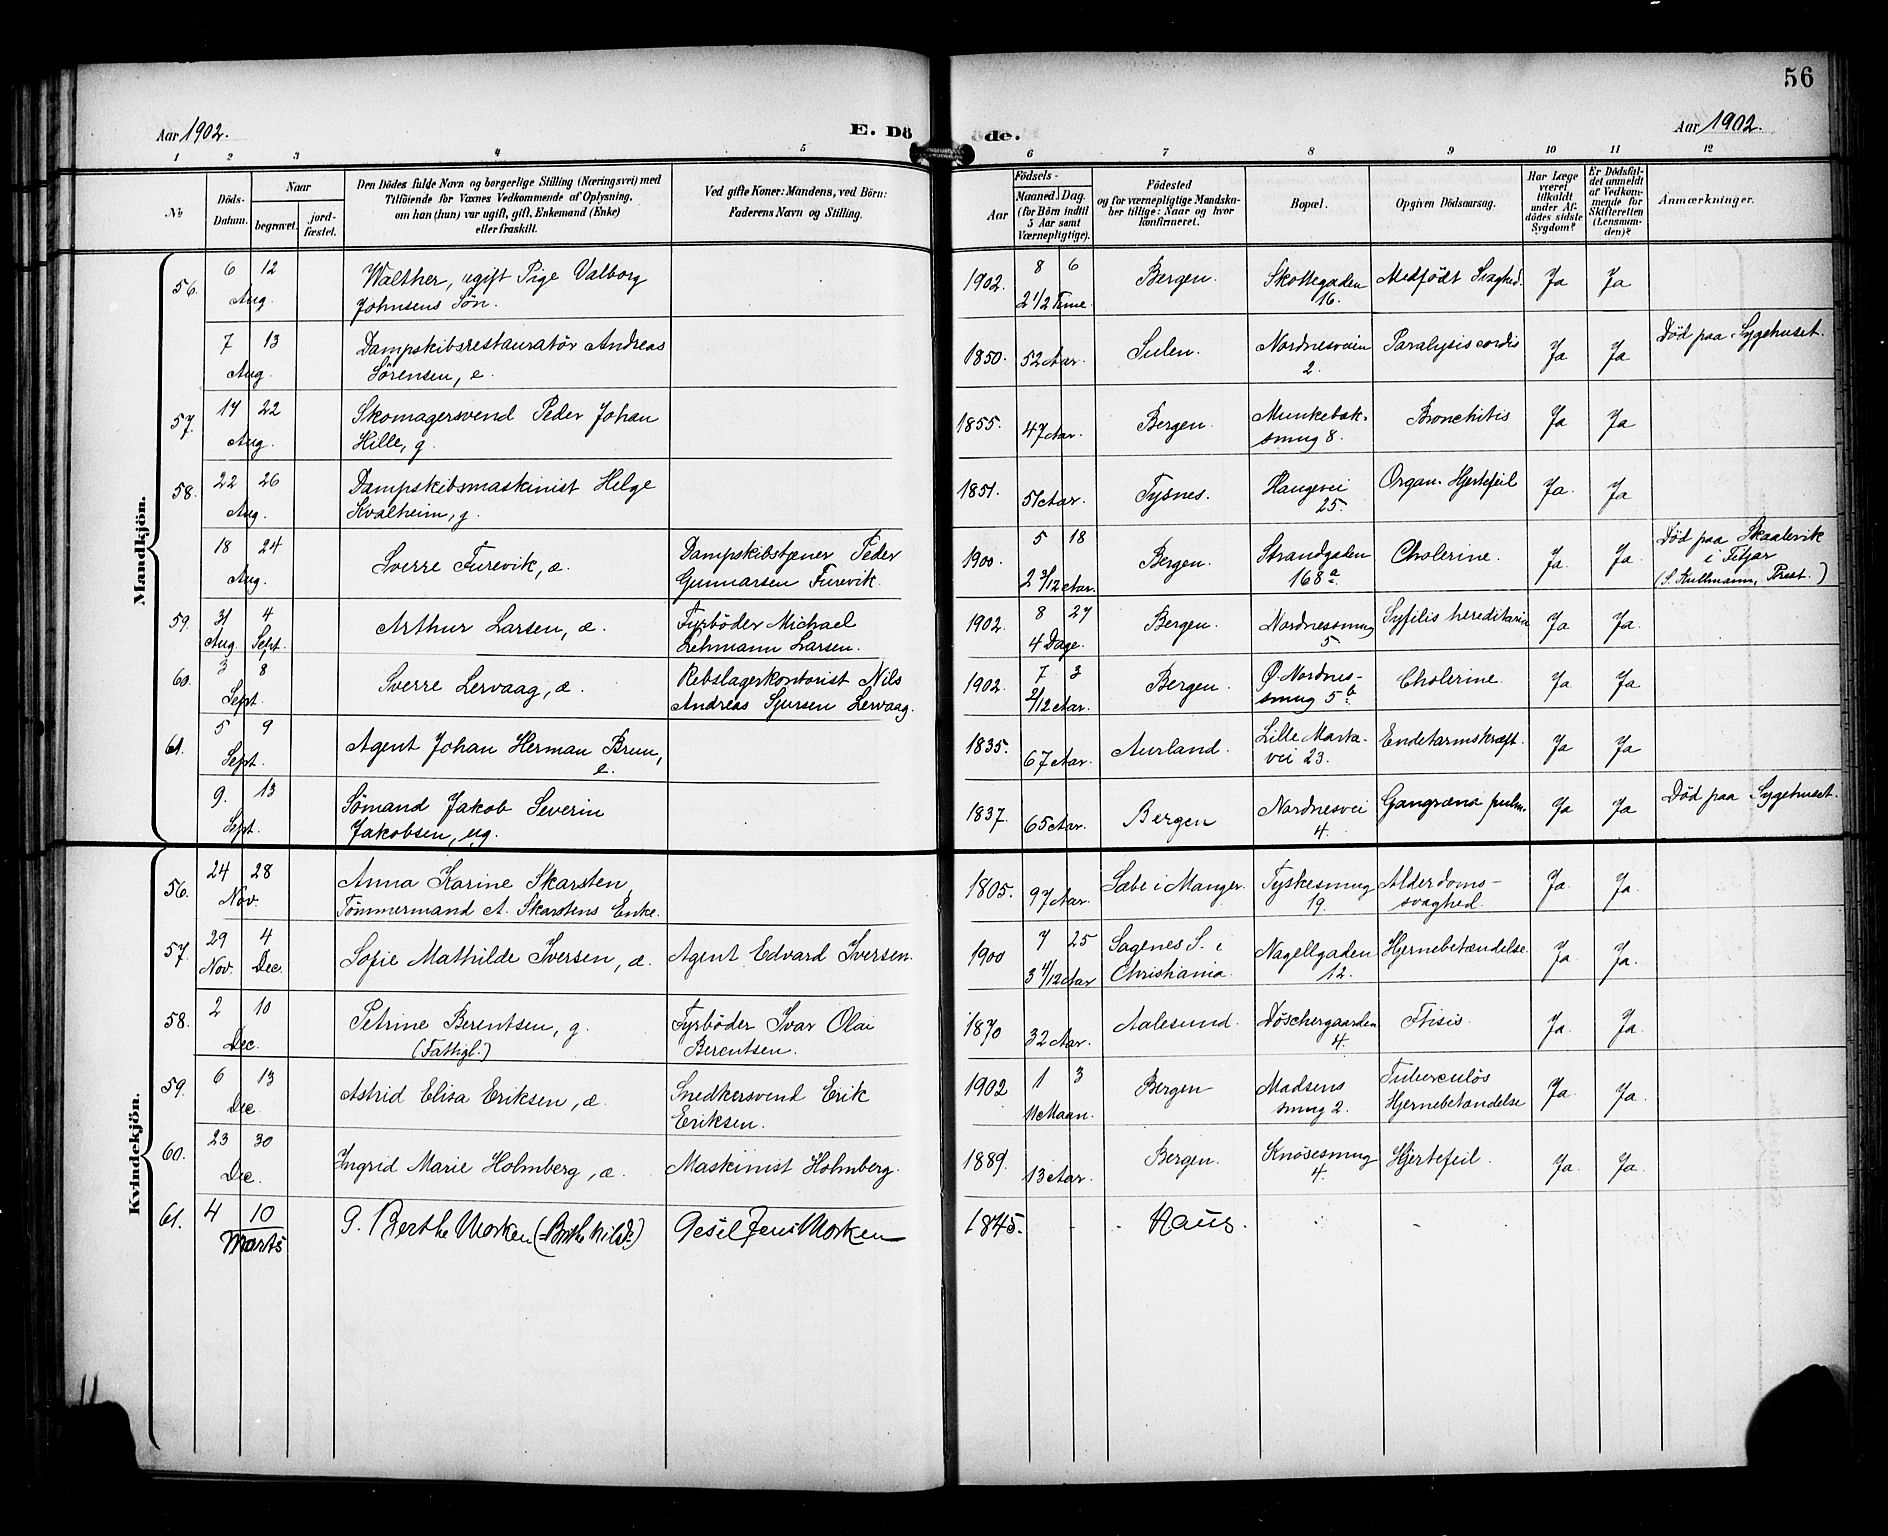 56
Aar 1902.
E. Dö de.
Aar 1902.
1 2 3 4 5 6 7 8 9 10 11 12
No
Döds-Datum.
Naar
begravet.
jord-fæstet.
Den Dödes fulde Navn og borgerlige Stilling (Næringsvei) med
Tilföiende for Voxnes Vedkommende af Oplysning,
om han (hun) var ugift, gift, Enkemand (Enke)
eller fraskilt.
Ved gifte Koner: Mandens, ved Börn:
Faderens Navn og Stilling.
Födsels-
Aar
Maaned Dag.
(for Börn indtil
5 Aar samt
Værnepligtige).
Födested
og for værnepligtige Mandska-
ber tillige: Naar og hvor
konfirmeret.
Bopæl.
Opgiven Dödsaarsag.
Har Læge
været
tilkaldt
under Af-
dödes sidste
Sygdom?
Er Dödsfal-
det anmeldt
af Vedkom-
mende for
Skifteretten
(Lensman-
den)?
Anmærkninger.
Mandkjön.
56. 6 12 Aug. Walther, ugift Pige Valborg
Johnsens Sön. 1902. 8 6 2 1/2 Time. Bergen. Skottegaden 16. Medfödt Svaghed. Ja Ja
7 13 Aug. Dampskibsrestauratör Andreas
Sörensen, e. 1850. 52 Aar. Sulen. Nordnesveien 2. Paralysis cordis Ja Ja Död paa Sygehuset.
57. 14 22 Aug. Skomagersvend Peder Johan
Hille, g. 1855. 47 Aar. Bergen. Munkebæk-
smug 8. Bronchitis Ja Ja
58. 22 26 Aug. Dampskibsmaskinist Helge
Kvalheim, g. 1851. 51 Aar. Tysnes. Haugevei 25. Organ. Hjertefeil Ja. Ja
18 24 Aug. Sverre Turevik, æ. Dampskibstjener Peder
Gunnarsen Turevik. 1900. 5 18 2 3/12 Aar. Bergen. Strandgaden 168 a. Cholerine. Ja. Ja. Död paa Skaalevik
i Fitjar
(S. Kullmann, Prest.)
59. 31 Aug. 4 Sept. Arthur Larsen, æ. Fyrböder Michael
Lehmann Larsen. 1902. 8 27 4 Dage. Bergen. Nordnessmug 5 Syfilis hereditaria Ja Ja.
60. 3 8 Sept. Sverre Lervaag, æ. Rebslagerkontorist Nils
Andreas Sjursen Lervaag. 1902. 7 3 2/12 Aar. Bergen. Ø. Nordnes-
smug 5 b. Cholerine. Ja Ja
61. 5 9 Sept. Agent Johan Herman Brun,
e. 1835. 67 Aar. Aurland. Lille Marke-
vei 23. Endetarmskræft. Ja Ja
9. 13 Sept. Sömand Jakob Severin
Jakobsen, ug. 1837. 65 Aar. Bergen Nordnesvei 4. Gangræna pulm. Ja Ja Död paa Sygehuset.
Kvindekjön.
56. 24 28 Nov. Anna Karine Skarsten,
Tömmermand A. Skarstens Enke. 1805. 97 Aar. Sæbö i Manger. Tyskesmug 19. Alderdoms-
svaghed. Ja. Ja.
57. 29 Nov. 4 Dec. Sofie Mathilde Iversen, æ. Agent Edvard Iversen. 1900 7 25 3 4/12 Aar Sagenes S. i
Christiania. Nagellgaden 12. Hjernebetændelse Ja Ja.
58. 2 10 Dec. Petrine Berentsen, g.
(Fattigl.) Fyrböder Ivar Olai
Berentsen. 1870 32 Aar. Aalesund. Döschergaarden 4. Ftisis Ja. Ja.
59. 6 13 Dec Astrid Elisa Eriksen, æ. Snedkersvend Erik
Eriksen. 1902 1 3 11 Maan. Bergen Madsens
smug 2. Tuberculös
Hjernebetændelse Ja. Ja.
60. 23 30 Dec. Ingrid Marie Holmberg, æ. Maskinist Holmberg. 1889. 13 Aar. Bergen. Knösesmug 4. Hjertefeil. Ja. Ja.
61. 4 10 Marts G. Berthe Morken Jens Morken 1845. Haus.
11